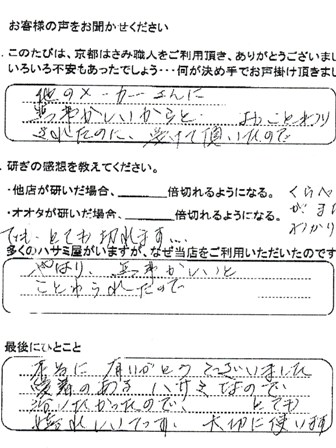 お客様の声をお聞かせください
.このたびは、京都はさみ職人をご利用頂き、ありがとうございまし
いろいろ不安もあったでしょう・・・何が決め手でお声掛け頂きまし
他のメーカーさんに
からと おことわり
されたのに、受けて頂いたので
.研ぎの感想を教えてください。
・他店が研いだ場合、______倍切れるようになる。
・オオタが研いだ場合、______倍切れるようになる。
くらべ
が
わかり
でも、とても切れます…
多くのハサミ屋がいますが、なぜ当店をご利用いただいたのです
やはり、
ことわられたので
最後にひとこと
本当に ありがとうございました
愛着のある ハサミなので
かったので、 とても
嬉しいです。 大切に使います